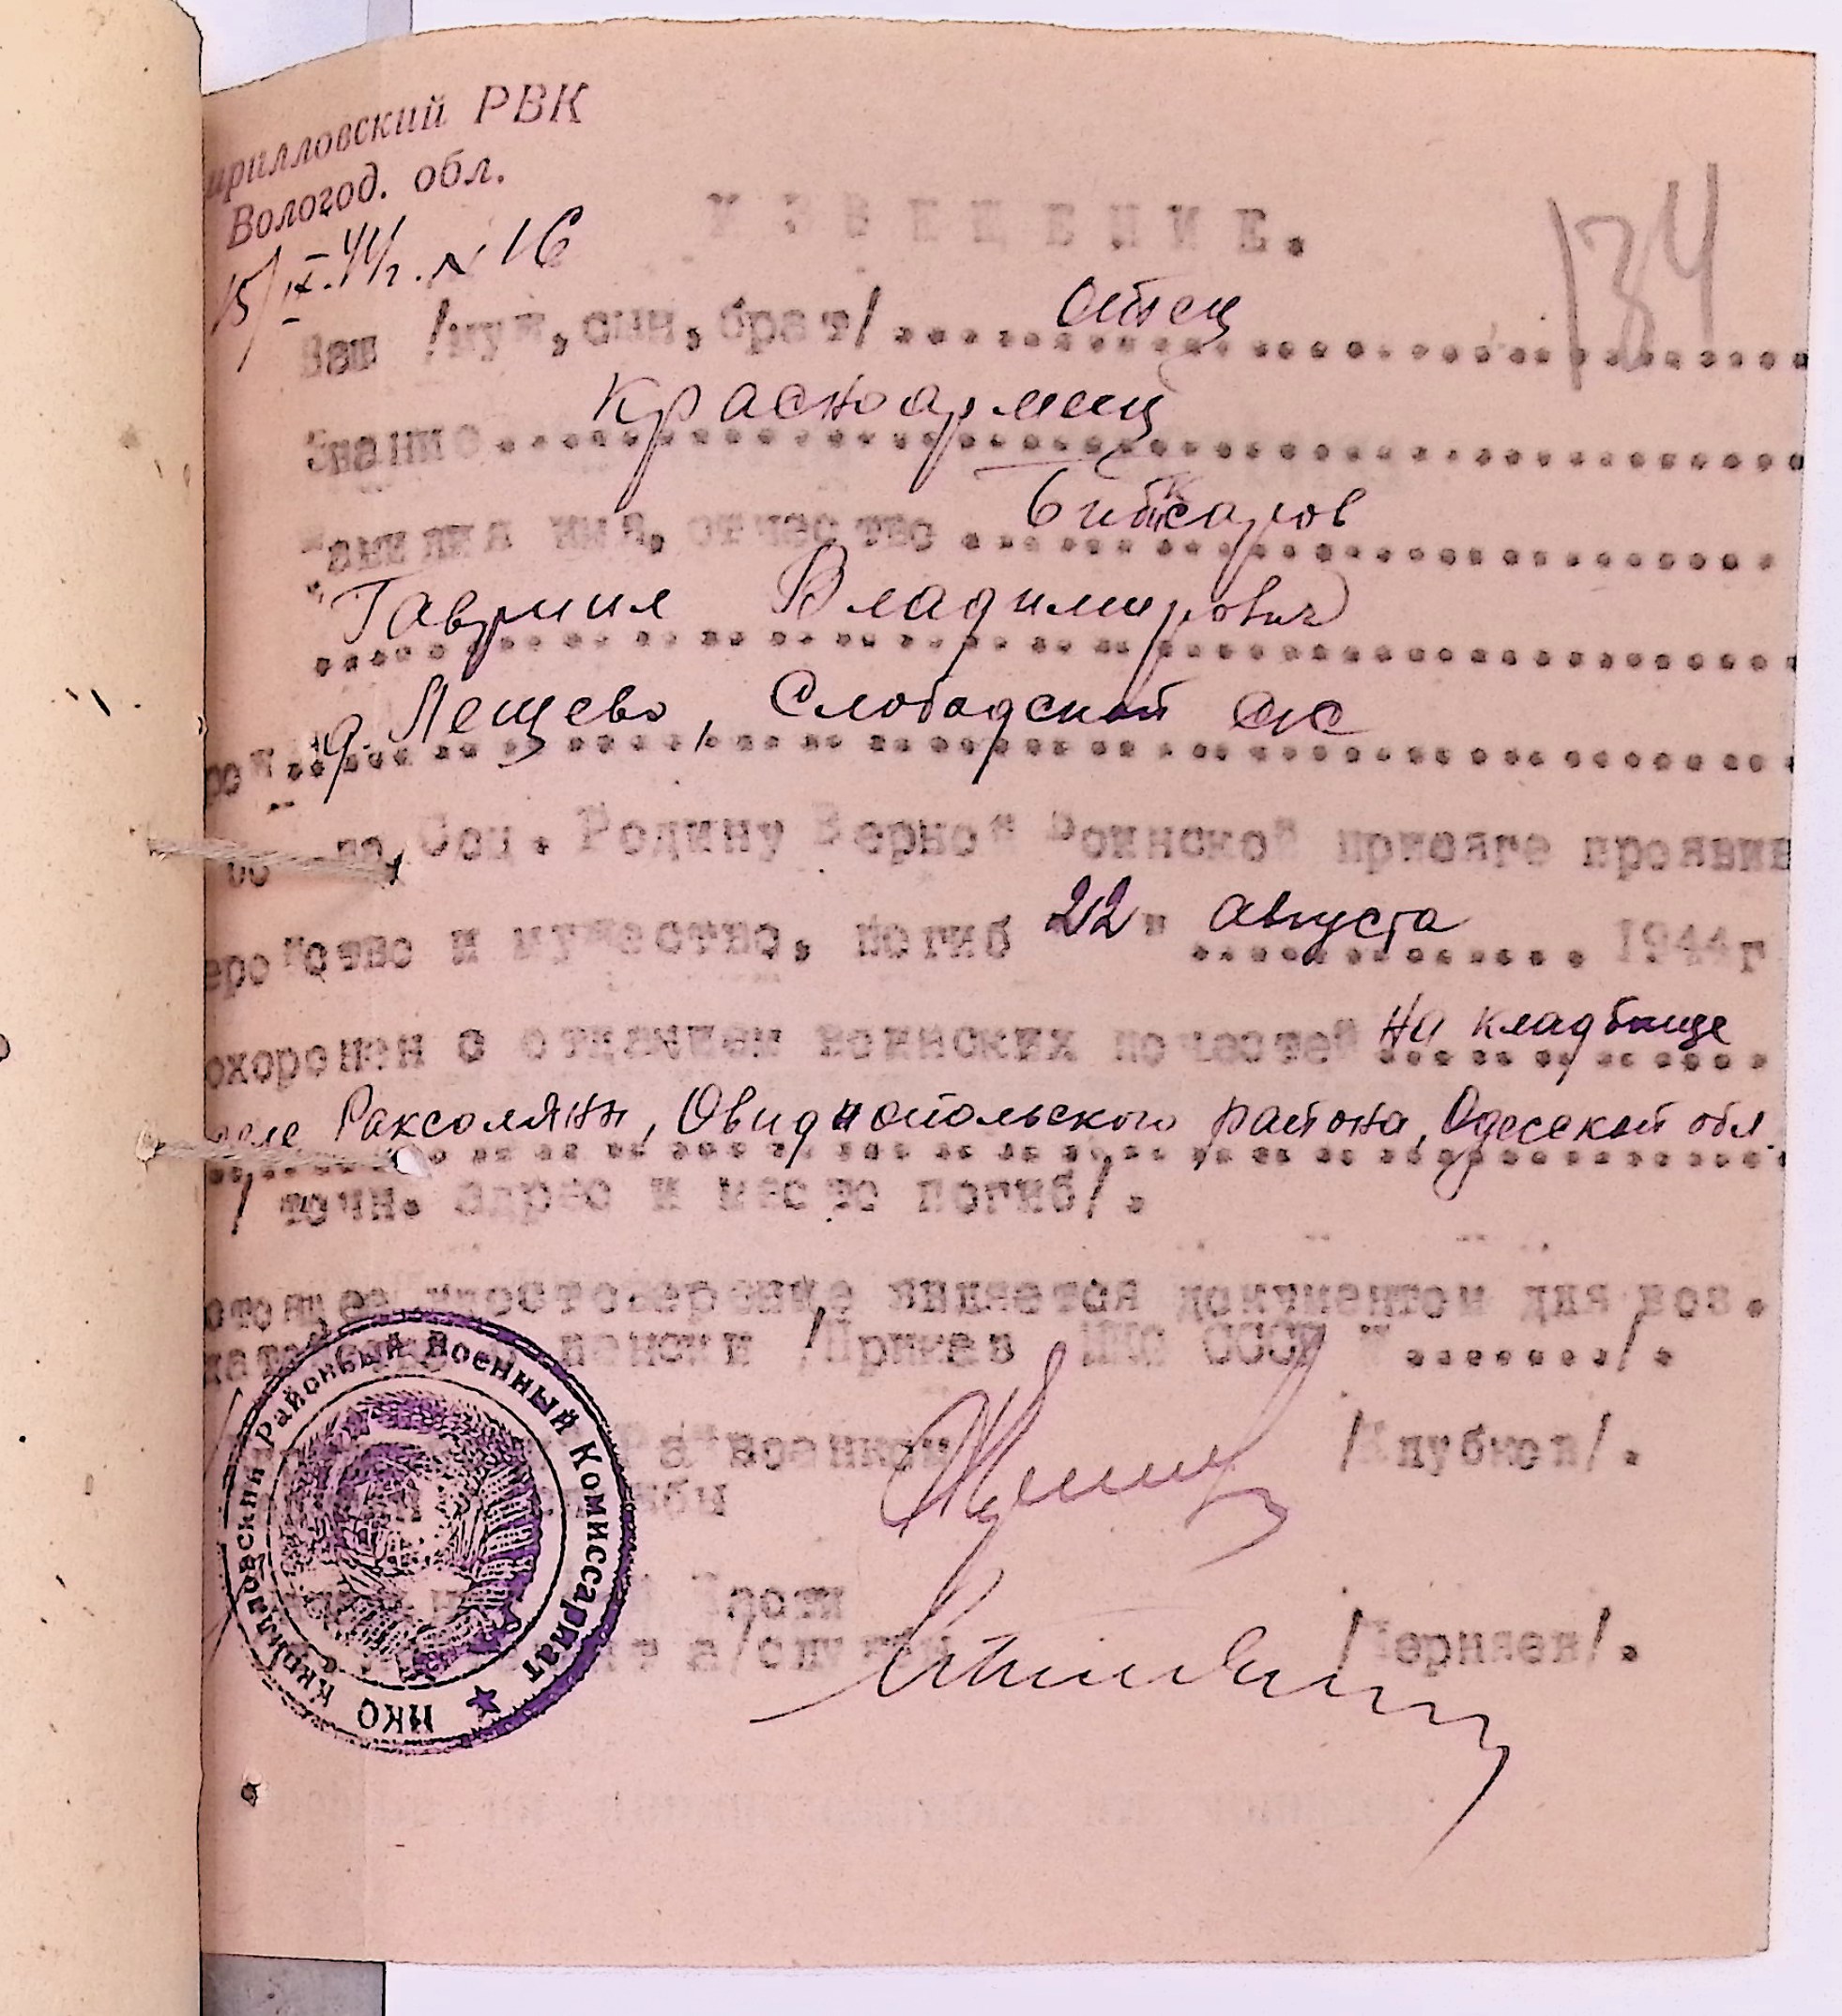 ирилловский РВК
Вологод. обл.
15/IX.44г. № 16
134
ИЗВЕЩЕНИЕ.
Ваш /муж, сын, брат/ Отец
Звание Красноармеец
Фамилия имя, отчество
Гавриил Владимирович
д. Лещево, Слободской с/с
Соц. Родину верной воинской присяге проявив
еройство и мужество, погиб 22" августа 1944г
охоронен с отданием воинских почестей на кладбище
селе Раксоляны, Овидиопольского района, Одесской обл.
/ точн. адрес и место погиб/.
является документом для воз.
пенсии /Приказ НКО СССР № ......./.
Райвоенком /Клубков/.
Части /Черняев/.
НКО Кирилловский Районный Военный Комиссариат